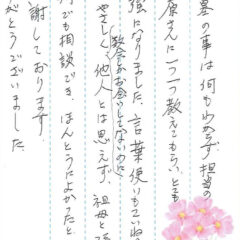 墓の事は何もわからず、担当の
原さんに一つ一つ教えてもらい、とても
強になりました。言葉使いもていね
やさしく、数回しかお会いしてないのに他人とは思えず、祖母と孫
何でも相談でき、ほんとうによかったと
謝しております。
がとうございました